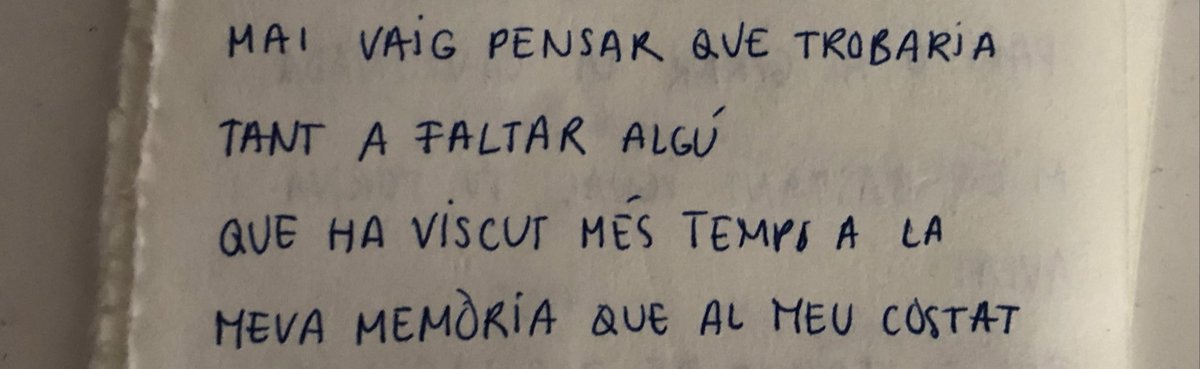 MAI VAIG PENSAR QUE TROBARIA
TANT A FALTAR ALGÚ
QUE HA VISCUT MÉS TEMPS A LA
MEVA MEMÒRIA QUE AL MEU COSTAT